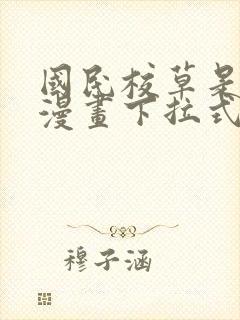 國民校草是
漫畫下拉式
穆子涵